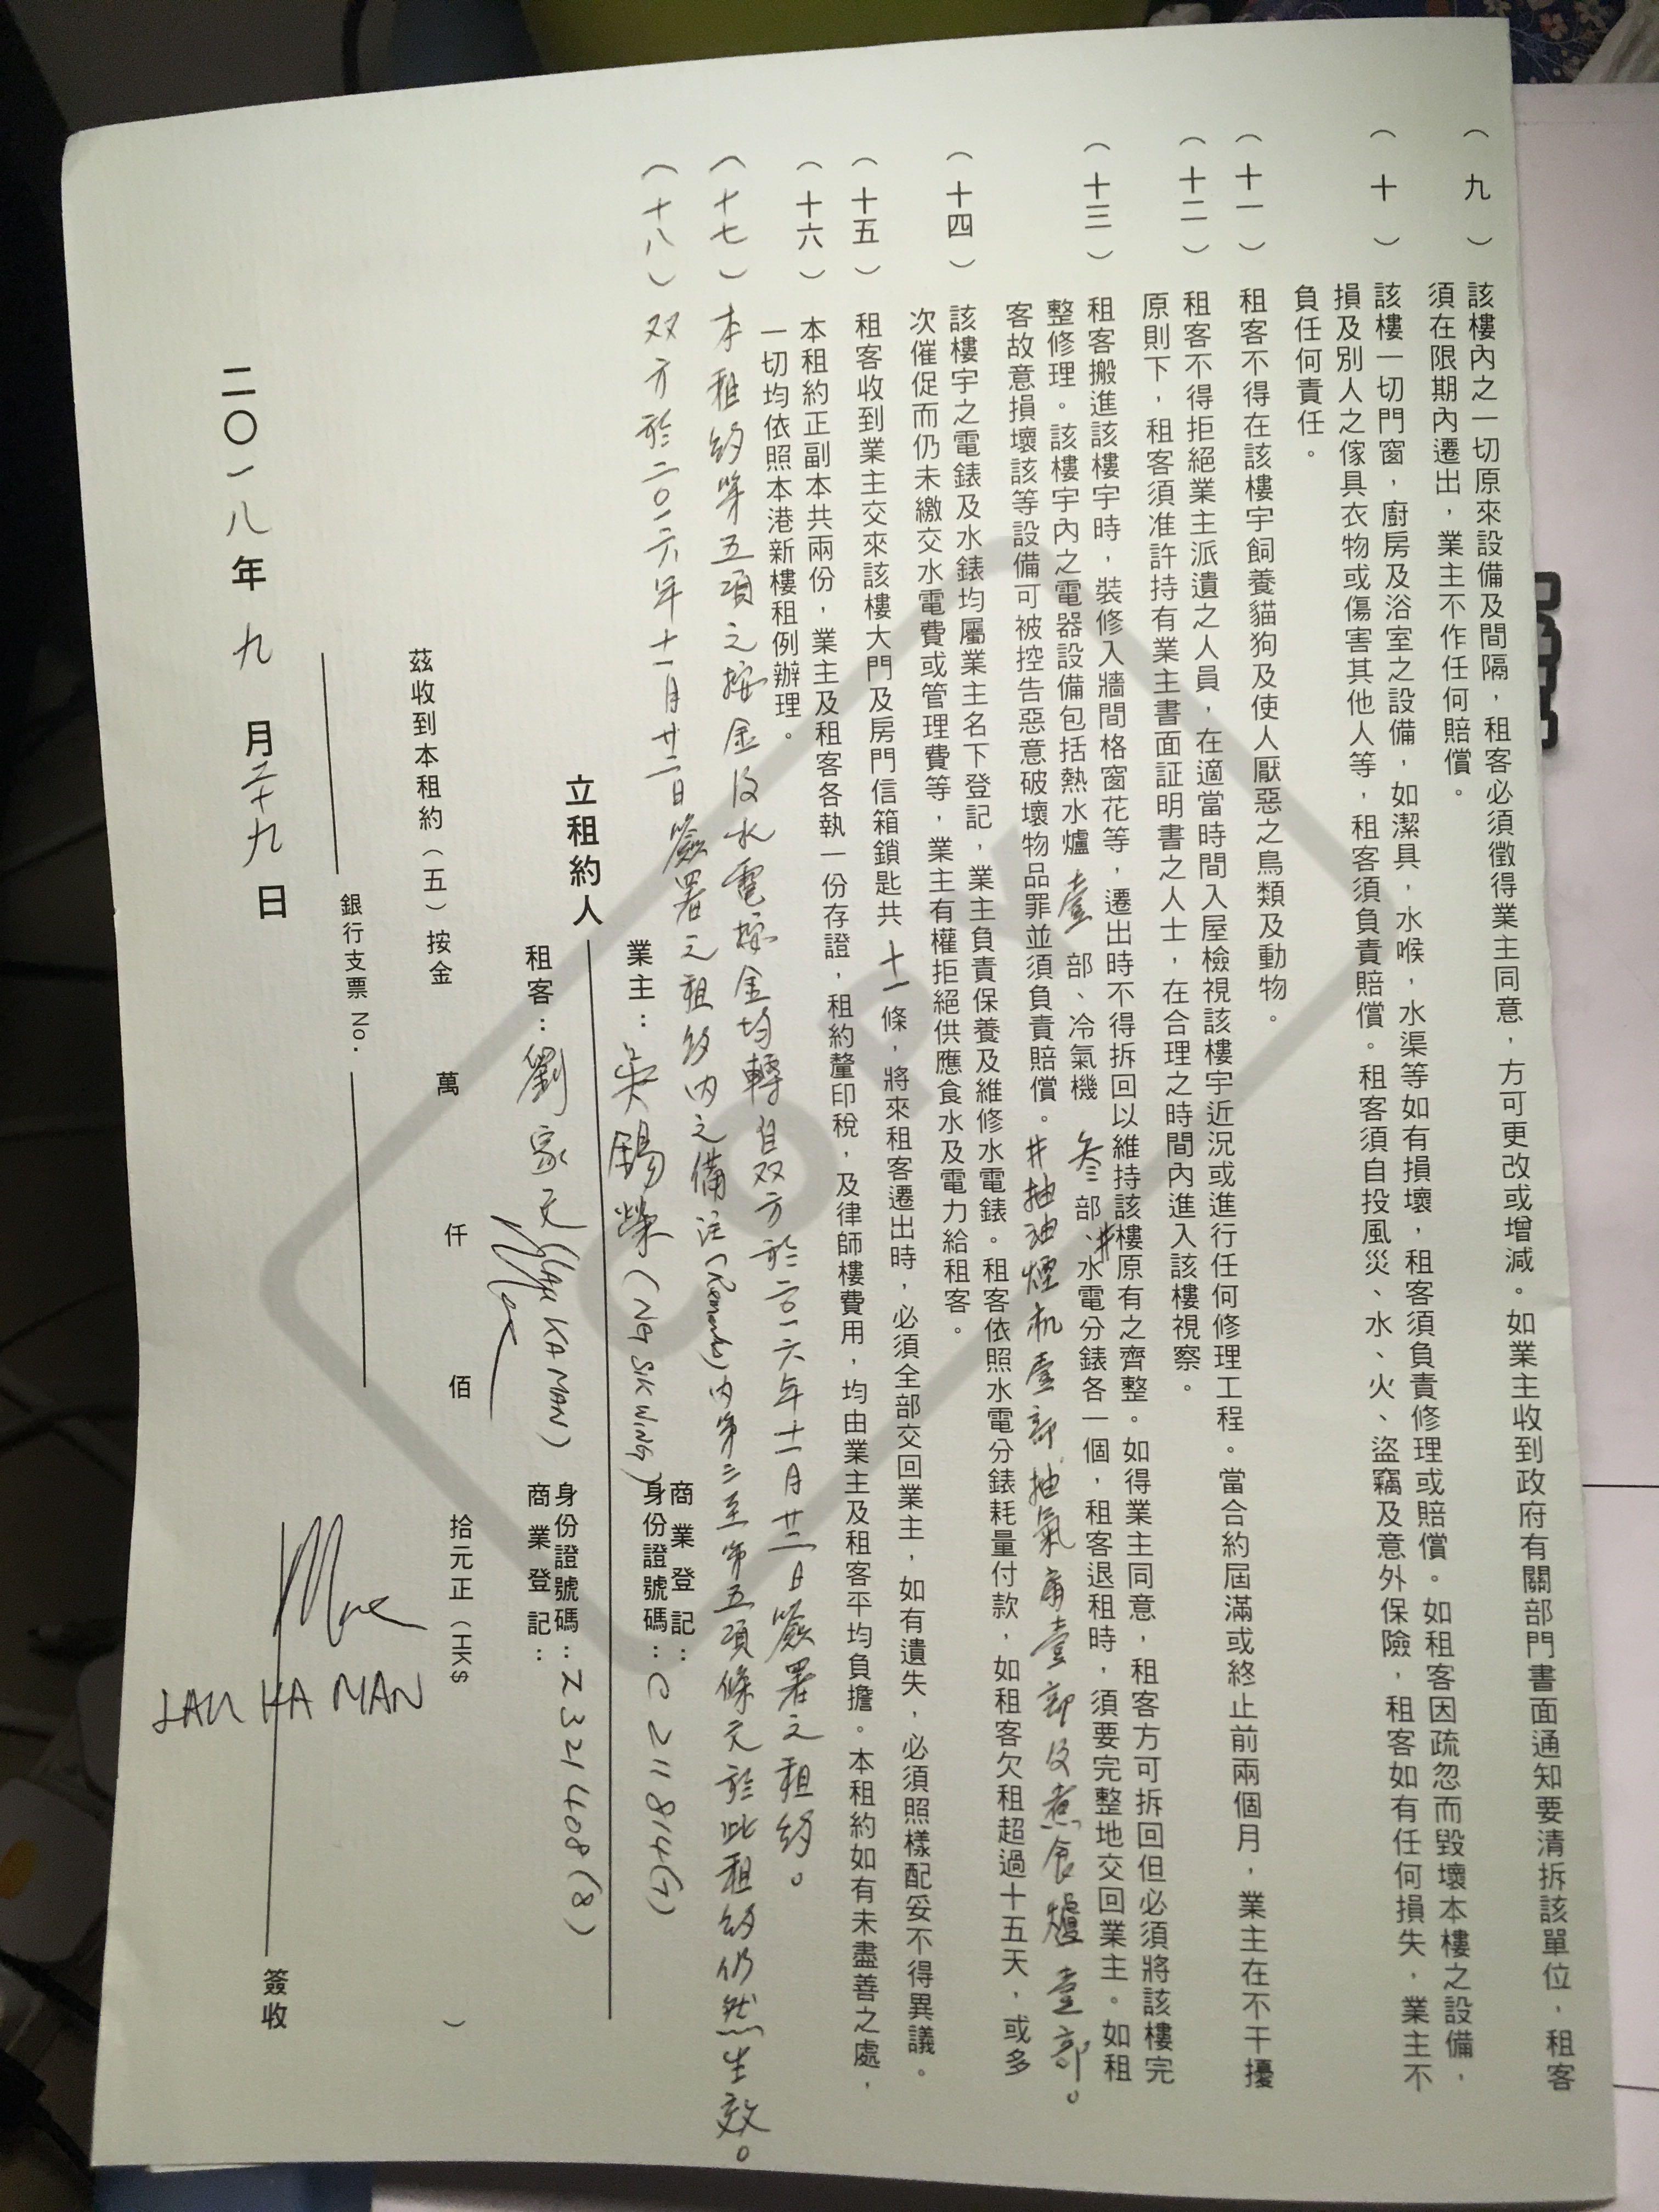 （九）該樓內之一切原來設備及間隔，租客必須徵得業主同意，方可更改或增減。如業主收到政府有關部門書面通知要清拆該單位，租客
須在限期內遷出，業主不作任何賠償。
（十）該樓一切門窗，廚房及浴室之設備，如潔具，水喉，水渠等如有損壞，租客須負責修理或賠償。如租客因疏忽而毀壞本樓之設備，
損及別人之傢具衣物或傷害其他人等，租客須負責賠償。租客須自投風災、水、火、盜竊及意外保險，租客如有任何損失，業主不
負任何責任。
（十一）租客不得在該樓宇飼養貓狗及使人厭惡之鳥類及動物。
（十二）租客不得拒絕業主派遺之人員，在適當時間入屋檢視該樓宇近況或進行任何修理工程。當合約屆滿或終止前兩個月，業主在不干擾
原則下，租客須准許持有業主書面証明書之人士，在合理之時間內進入該樓視察。
（十三）租客搬進該樓宇時，裝修入牆間格窗花等，遷出時不得拆回以維持該樓原有之齊整。如得業主同意，租客方可拆回但必須將該樓完
整修理。該樓宇內之電器設備包括熱水爐 壹 部、冷氣機 叁 部#、水電分錶各一個，租客退租時，須要完整地交回業主。如租
客故意損壞該等設備可被控告惡意破壞物品罪並須負責賠償。#抽油煙机壹部抽氣扇壹部及煮食爐壹部。
（十四）該樓宇之電錶及水錶均屬業主名下登記，業主負責保養及維修水電錶。租客依照水電分錶耗量付款，如租客欠租超過十五天，或多
次催促而仍未繳交水電費或管理費等，業主有權拒絕供應食水及電力給租客。
（十五）租客收到業主交來該樓大門及房門信箱鎖匙共 十一 條，將來租客遷出時，必須全部交回業主，如有遺失，必須照樣配妥不得異議。
（十六）本租約正副本共兩份，業主及租客各執一份存證，租約釐印稅，及律師樓費用，均由業主及租客平均負擔。本租約如有未盡善之處，
一切均依照本港新樓租例辦理。
（十七）本租約第五項之按金及水電按金均轉自双方於二〇一六年十一月廿二日簽署之租約。
（十八）双方於二〇一六年十一月廿二日簽署之租約內之備注(Remarks)內第三至第五項條元於此租約仍然生效。
立租約人
業主：吳錫榮（NG SIK WING）
商業登記：
身份證號碼：C211814(7)
租客：劉家文（LAU KA MAN）
身份證號碼：Z321408(8)
商業登記：
茲收到本租約（五）按金 萬 仟 佰 拾元正（HK$ ）
銀行支票 No.
LAU KA MAN
簽收
二〇一八年 九 月二十九日
COPY